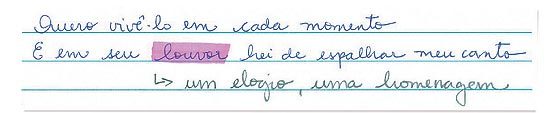 Quero vivê-lo em cada momento
E em seu louvor hei de espalhar meu canto
↳ um elogio, uma homenagem